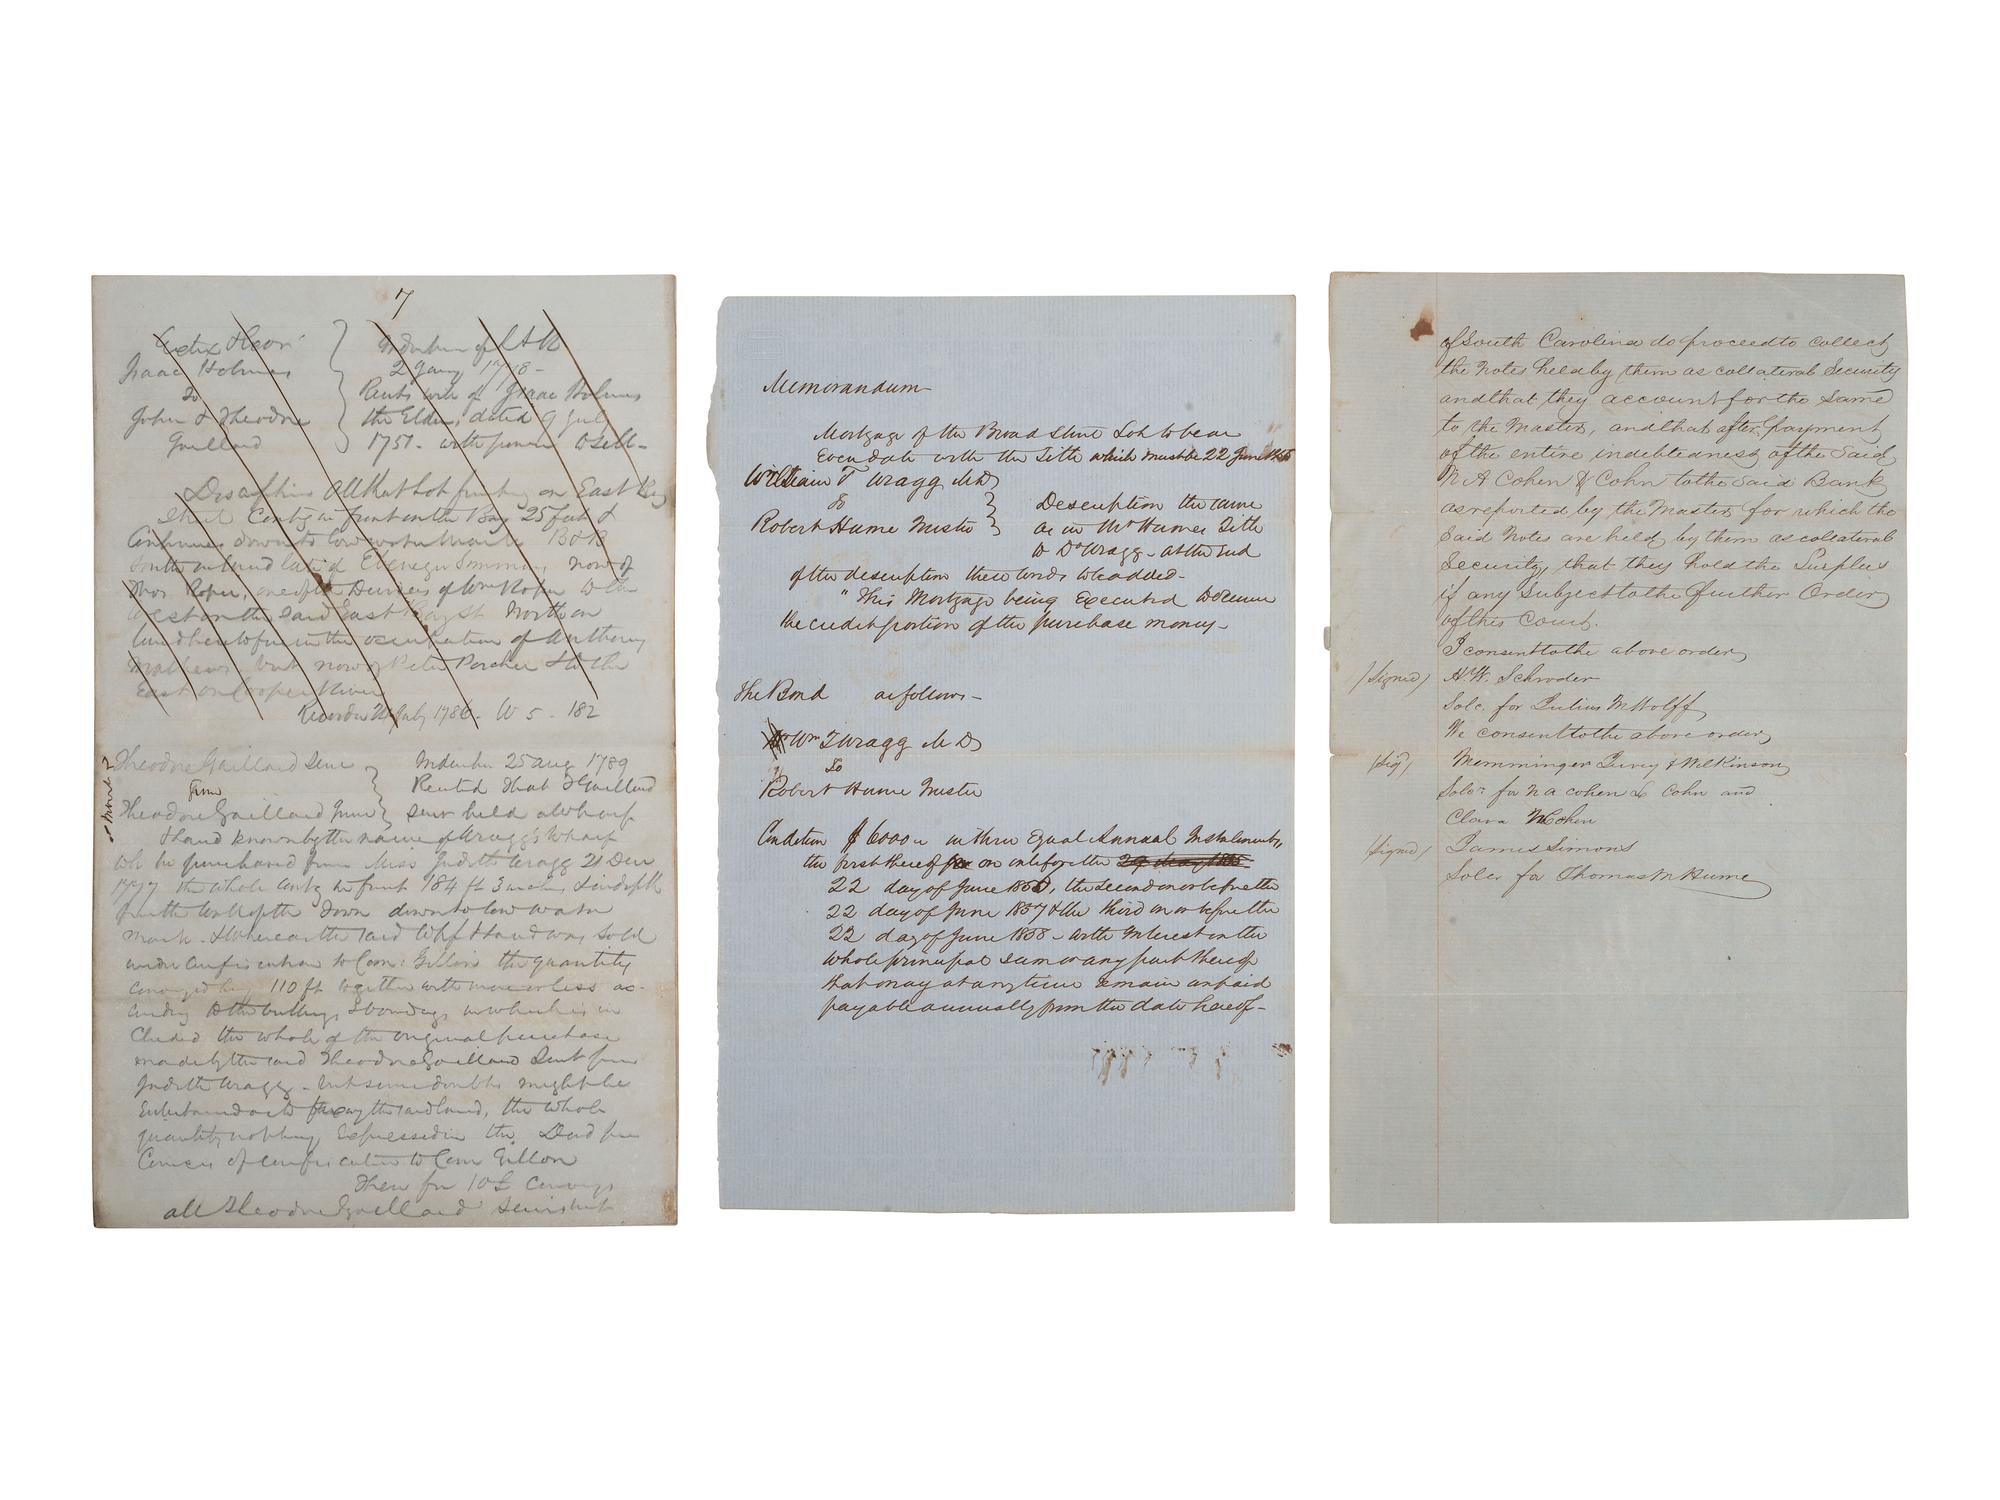 7
Isaac Holmes
To
John & Theodore
Gaillard
Indenture of L & R
the Elder, dated 9 July
1751 - with power to sell -
Description All that Lot fronting on East Bay
Street Contg in front on the Bay 25 feet &
Continues down to low water mark B & R
South on land late of Ebenezer Simmons, now of
Thos Roper, one of the Devisees of Wm Roper to the
West on the said East Bay St North on
land heretofore in the occupation of Anthony
Mathews, but now of Peter Porcher & to the
East on Cooper River
Recorded July 1786 - W 5 - 182
Theodore Gaillard Senr
from
Theodore Gaillard Junr
Indenture 25 Aug 1789
Recited That T Gaillard
senr held a wharf
& land known by the name of Wragg's Wharf
wh he purchased from Miss Judith Wragg 21 Decr
the whole contg in front 184 ft 3 inches & in depth
down to low water
mark - & Whereas the said Whf & land was sold
under confiscation to Com: Gillon the quantity
conveyed being 110 ft together with more or less ac-
cording to the buttings & boundings in which is in
cluded the whole of the original purchase
made by the said Theodore Gaillard Senr from
Judith Wragg - but some doubts might be
Entertained as to the said land, the whole
quantity not being Expressed in the Deed from
Comrs of confiscation to Com Gillon
Then for 10 £ Conveys
all Theodore Gaillard Seniors int
Memorandum
Mortgage of the Broad Street Lot to bear
Even date with the Title which must be 22 June 1855
William T Wragg M D
to
Robert Hume Mister
Description the same
as in Mr Humes Title
to Dr Wragg - at the end
of the description these words to be added -
"This Mortgage being Executed to secure
the credit portion of the purchase money -
The Bond as follows -
Wm T Wragg M D
To
Robert Hume Mister
Condition $ 6000 in three Equal Annual Instalments,
the first thereof on or before the
22 day of June 1856, the second on or before the
22 day of June 1857 & the third on or before the
22 day of June 1858 - with Interest on the
whole principal sum or any part thereof
that may at any time remain unpaid
payable annually from the date hereof -
of South Carolina do proceed to collect
the Notes held by them as collateral Security
and that they account for the Same
to the Master, and that after payment
of the entire indebtedness of the Said
N A Cohen & Cohn to the Said Bank
as reported by the Master for which the
Said Notes are held by them as collateral
Security, that they hold the Surplus
if any Subject to the further Order
of this Court.
I consent to the above order,
(Signed) H W. Schroder
Solr. for Julius M Wolff,
We consent to the above order,
(Sig) Memminger Jervey & Wilkinson
Solrs for N A Cohen & Cohn and
Clara Cohen
(Signed) James Simons
Solcr for Thomas M Hume